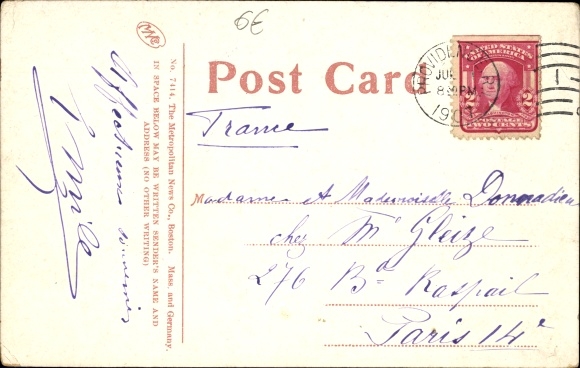 6€
Post Card
No. 7414. The Metropolitan News Co., Boston. Mass. and Germany.
IN SPACE BELOW MAY BE WRITTEN SENDER'S NAME AND
ADDRESS (NO OTHER WRITING)
Affectueux souvenirs
PROVIDE
8 PM
UNITED STATES
OF AMERICA
2 2
POSTAGE
TWO CENTS
France
Madame et Mademoiselle Donnadieu
chez Mr Gleize
276 Bd Raspail
Paris 14e